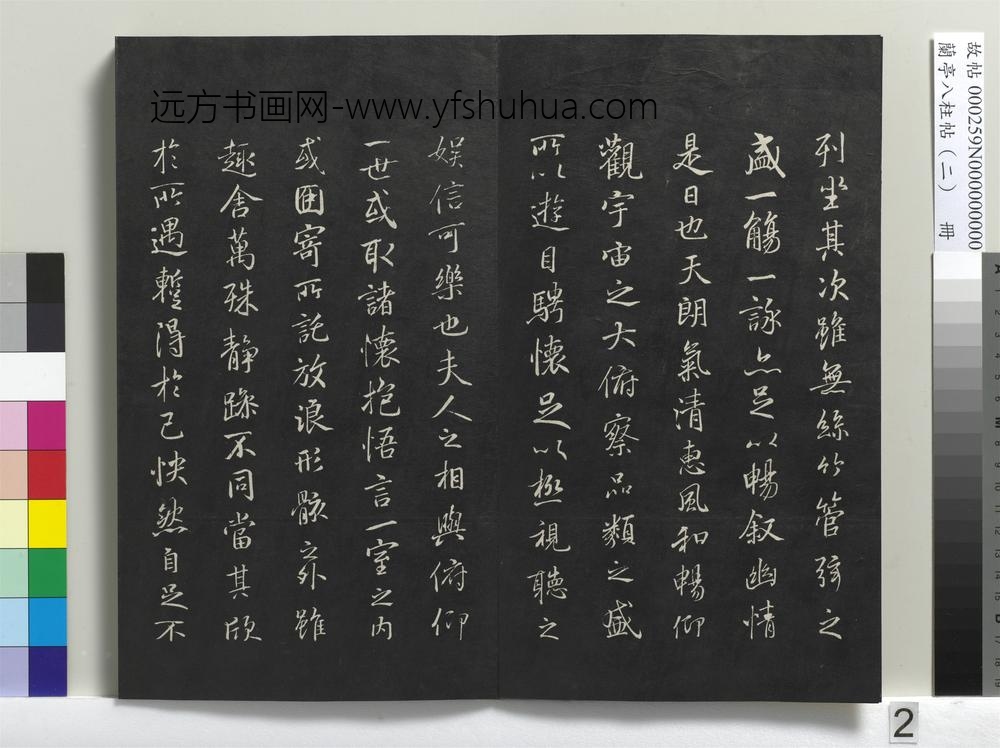 列坐其次雖無絲竹管弦之
盛一觴一詠亦足以暢叙幽情
是日也天朗氣清惠風和暢仰
觀宇宙之大俯察品類之盛
所以遊目騁懷足以極視聽之
娛信可樂也夫人之相與俯仰
一世或取諸懷抱悟言一室之內
或因寄所託放浪形骸之外雖
趣舍萬殊靜躁不同當其欣
於所遇蹔得於己怏然自足不
远方书画网-www.yfshuhua.com
故帖 000259N000000000
蘭亭八柱帖（二） 冊
2